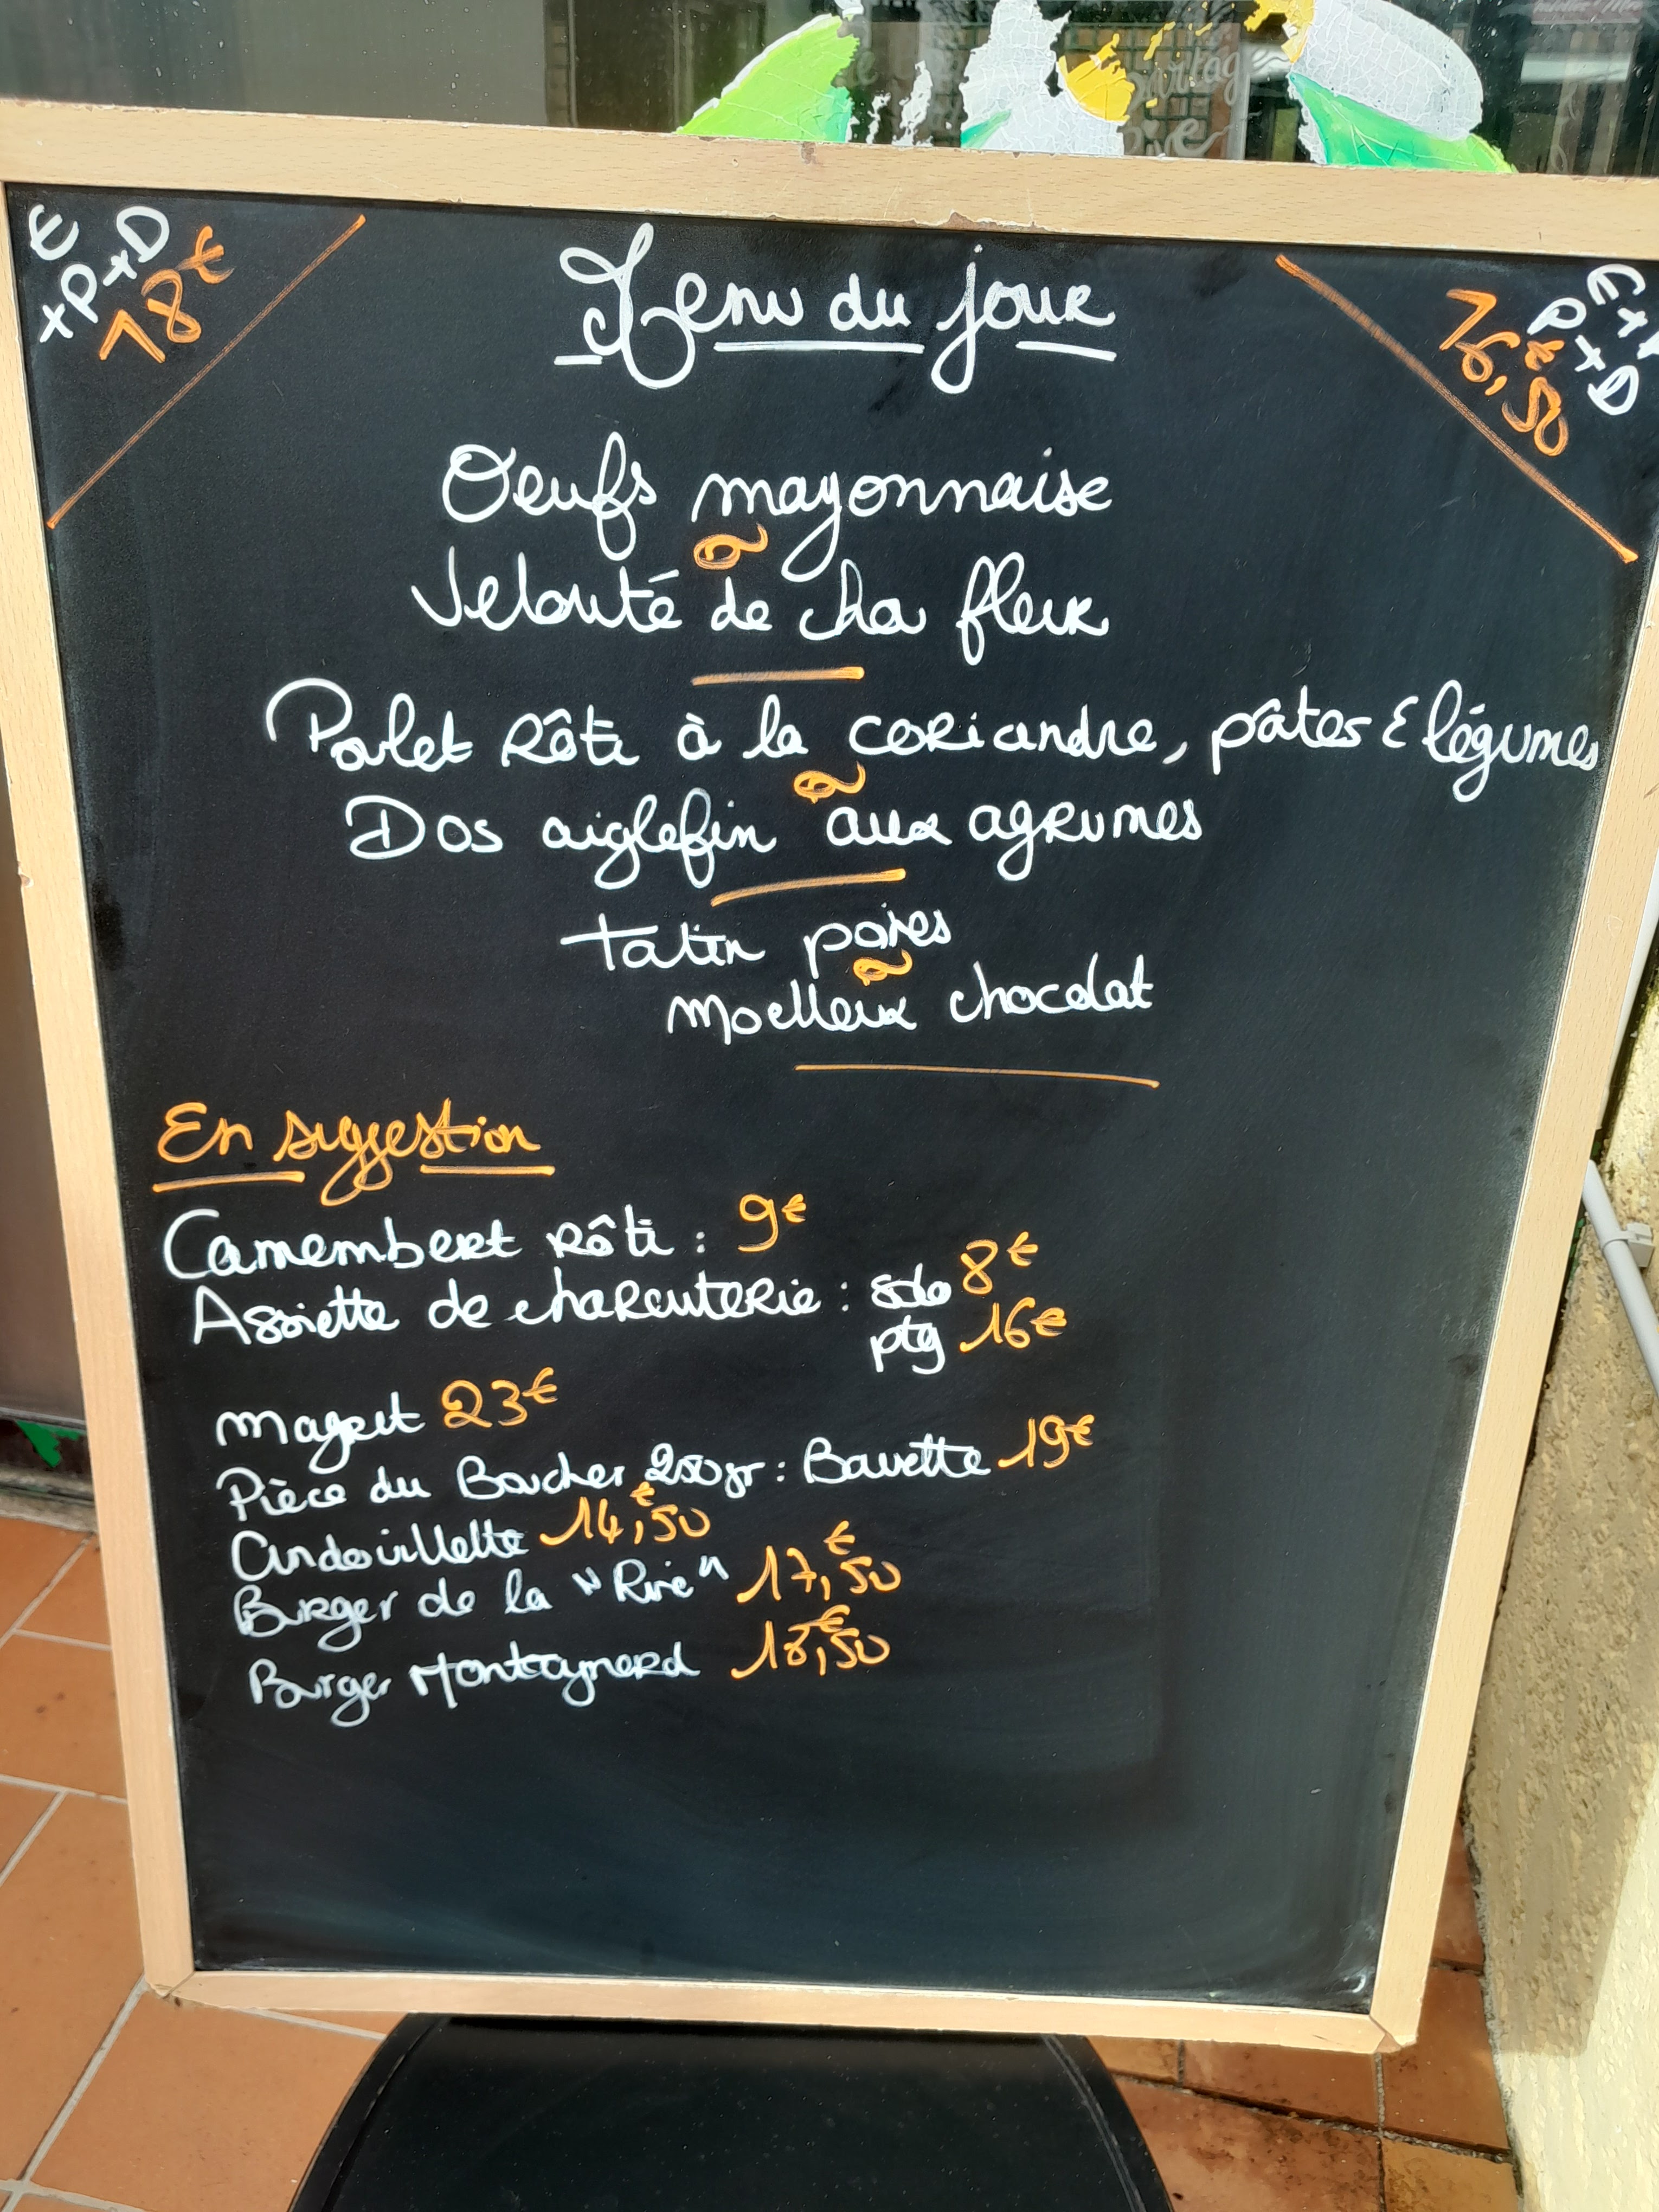 E
+P+D
18€
Menu du jour
E+P
P+D
16,€50
Oeufs mayonnaise
Velouté de chou fleur
Poulet rôti à la coriandre, pâtes & légumes
Dos aiglefin aux agrumes
Tatin poires
Moelleux chocolat
En suggestion
Camembert rôti : 9€
Assiette de charcuterie : solo 8€
ptg 16€
Magret 23€
Pièce du Boucher 250gr : Bavette 19€
Andouillette 14,€50
Burger de la "Rive" 17,€50
Burger Montagnard 18,€50